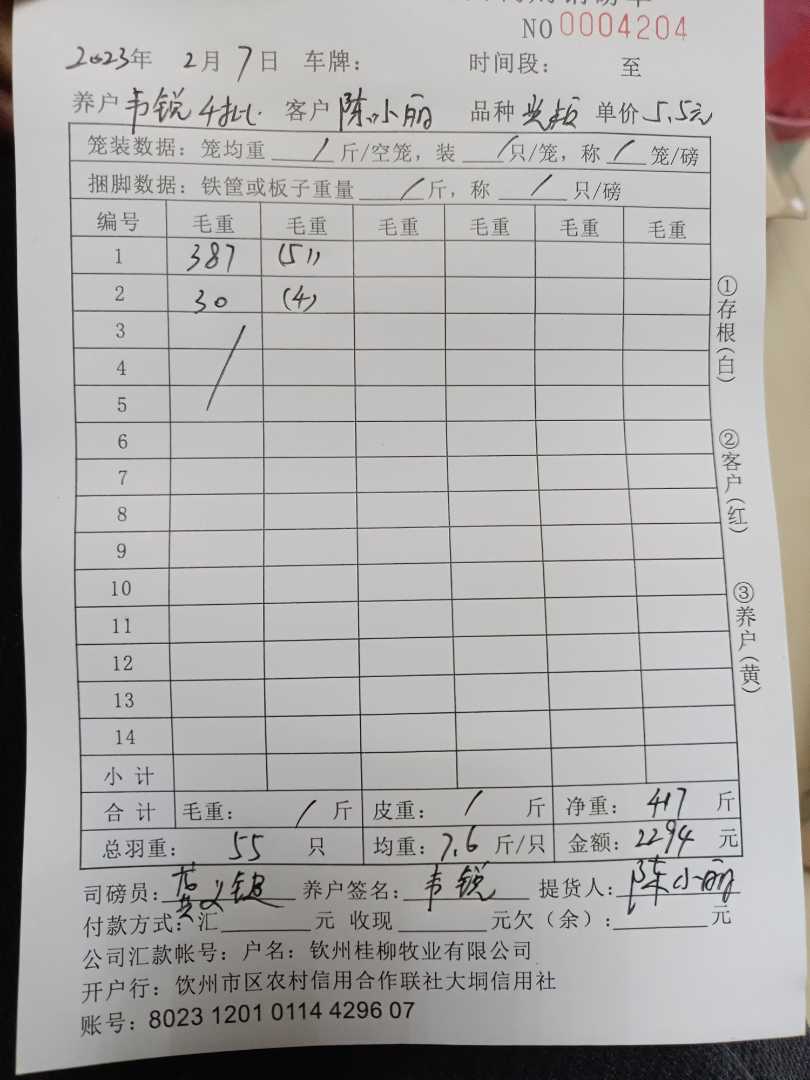 NO 0004204
2023年 2月 7日 车牌： 时间段： 至
养户 韦锐 4批 客户 陈小丽 品种 单价 5.5元
笼装数据：笼均重 / 斤/空笼，装 / 只/笼，称 / 笼/磅
捆脚数据：铁筐或板子重量 / 斤，称 / 只/磅
编号 毛重 毛重 毛重 毛重 毛重 毛重
1 387 (51)
2 30 (4)
3 /
4
5
6
7
8
9
10
11
12
13
14
小计
合计 毛重： / 斤 皮重： / 斤 净重： 417 斤
总羽重： 55 只 均重：7.6 斤/只 金额：2294 元
司磅员： 养户签名：韦锐 提货人：陈小丽
付款方式：汇 元 收现 元欠（余）： 元
公司汇款帐号：户名：钦州桂柳牧业有限公司
开户行：钦州市区农村信用合作联社大垌信用社
账号：8023 1201 0114 4296 07
①存根(白)
②客户(红)
③养户(黄)